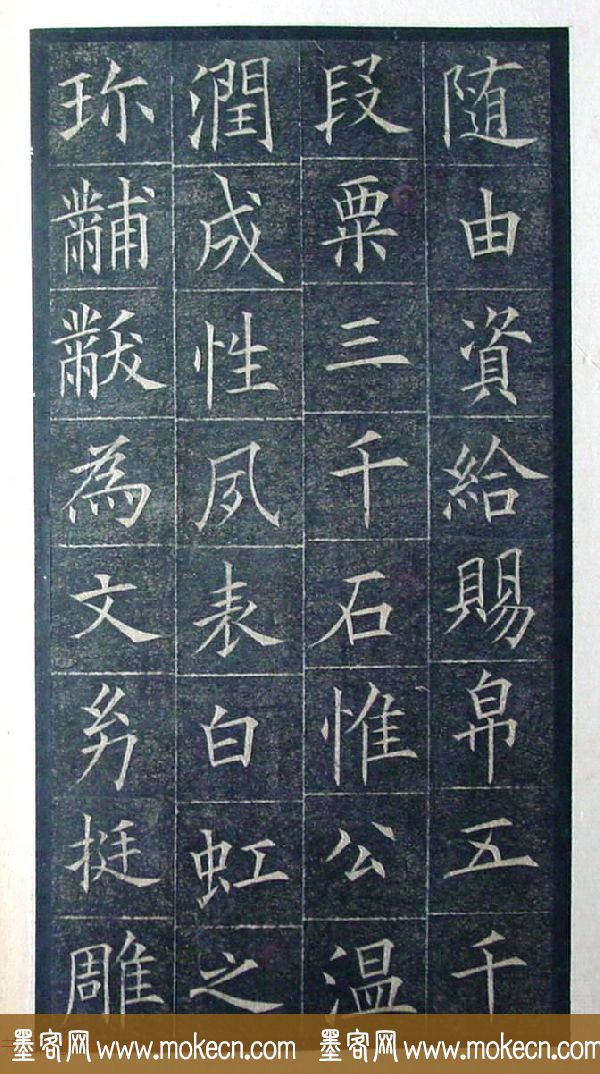 随由資給賜帛五千
段粟三千石惟公温
潤成性夙表白虹之
珎黼黻為文幼挺雕
墨客网 www.mokecn.com 墨客网 www.mokecn.com